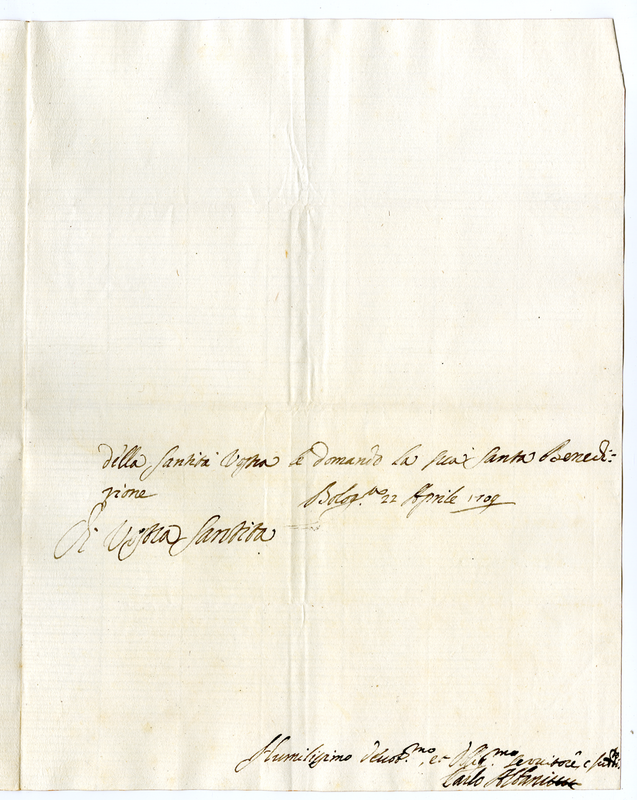 della Santità Vostra le domando la sua Santa Benedi=
zione Bolog.na 22 Aprile 1709
Di Vostra Santità
Humilissimo devot.mo, et obblig.mo servitore e
Carlo Albani